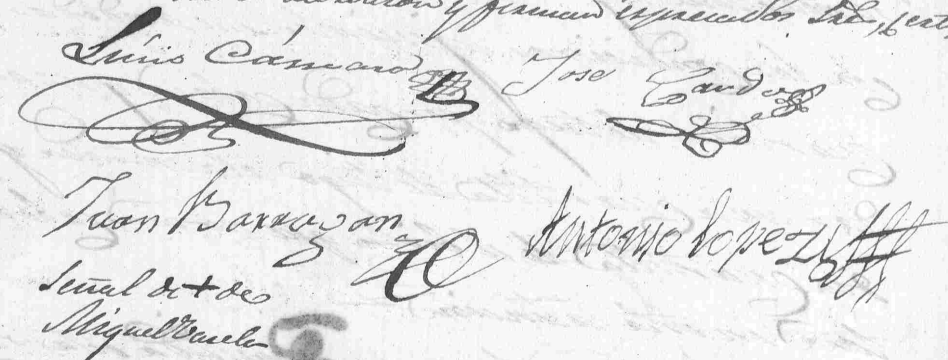 y firman expresados Sres,
Luis Cámara
Jose Candos
Juan Barragan
Antonio Lopez
Señal de + de
Miguel Varela